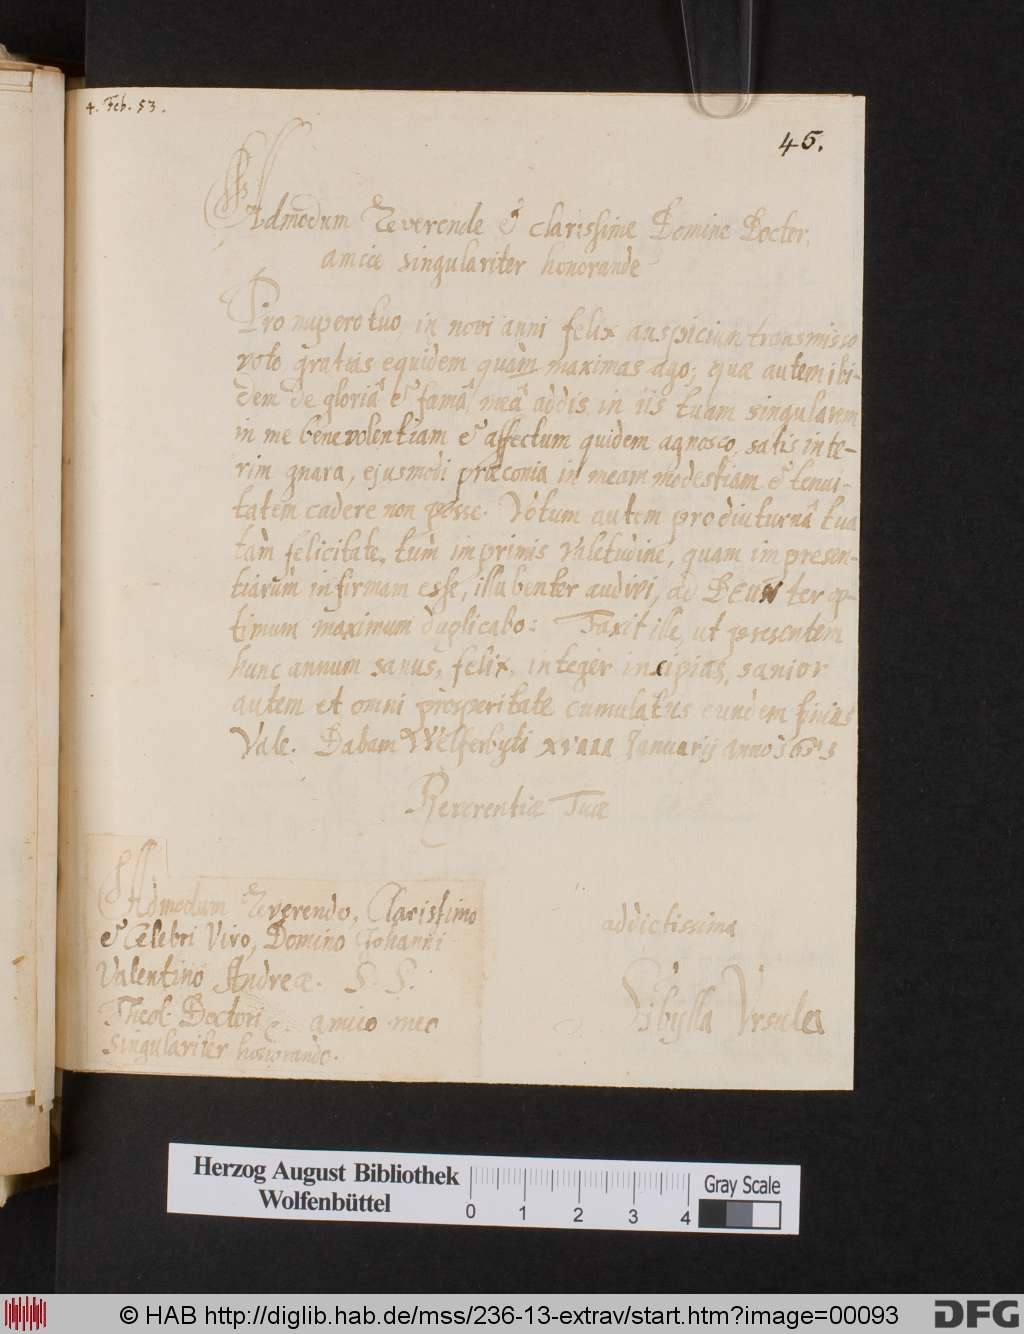 4. Feb. 53.
45.
Admodum Reverende & clarissime Domine Doctor,
amice singulariter honorande
Pro nupero tuo, in novi anni felix auspicium transmisso
voto, gratias equidem quàm maximas ago; quæ autem ibi-
dem de gloriâ & famâ meâ addis in iis tuam singularem
in me benevolentiam & affectum quidem agnosco, satis inte-
rim gnara, ejusmodi præconia in meam modestiam & tenui-
tatem cadere non posse. Votum autem pro diuturnâ tua
tam felicitate, tum imprimis valetudine, quam impresen-
tiarum infirmam esse, illubenter audivi, ad DEUM ter op-
timum maximum duplicabo: Faxit ille, ut presentem
hunc annum sanus, felix, integer incipias, sanior
autem et omni prosperitate cumulatus eundem finias
Vale. Dabam Welferbyti Januarij anno
Reverentiæ Tuæ
addictissima
Sibylla Ursula
Admodum Reverendo, Clarissimo
& Celebri Viro, Domino Johanni
Valentino Andreæ. S. S.
Theol. Doctori amico meo
singulariter honorando.
Herzog August Bibliothek
Wolfenbüttel
0 1 2 3 4
Gray Scale
© HAB http://diglib.hab.de/mss/236-13-extrav/start.htm?image=00093
DFG